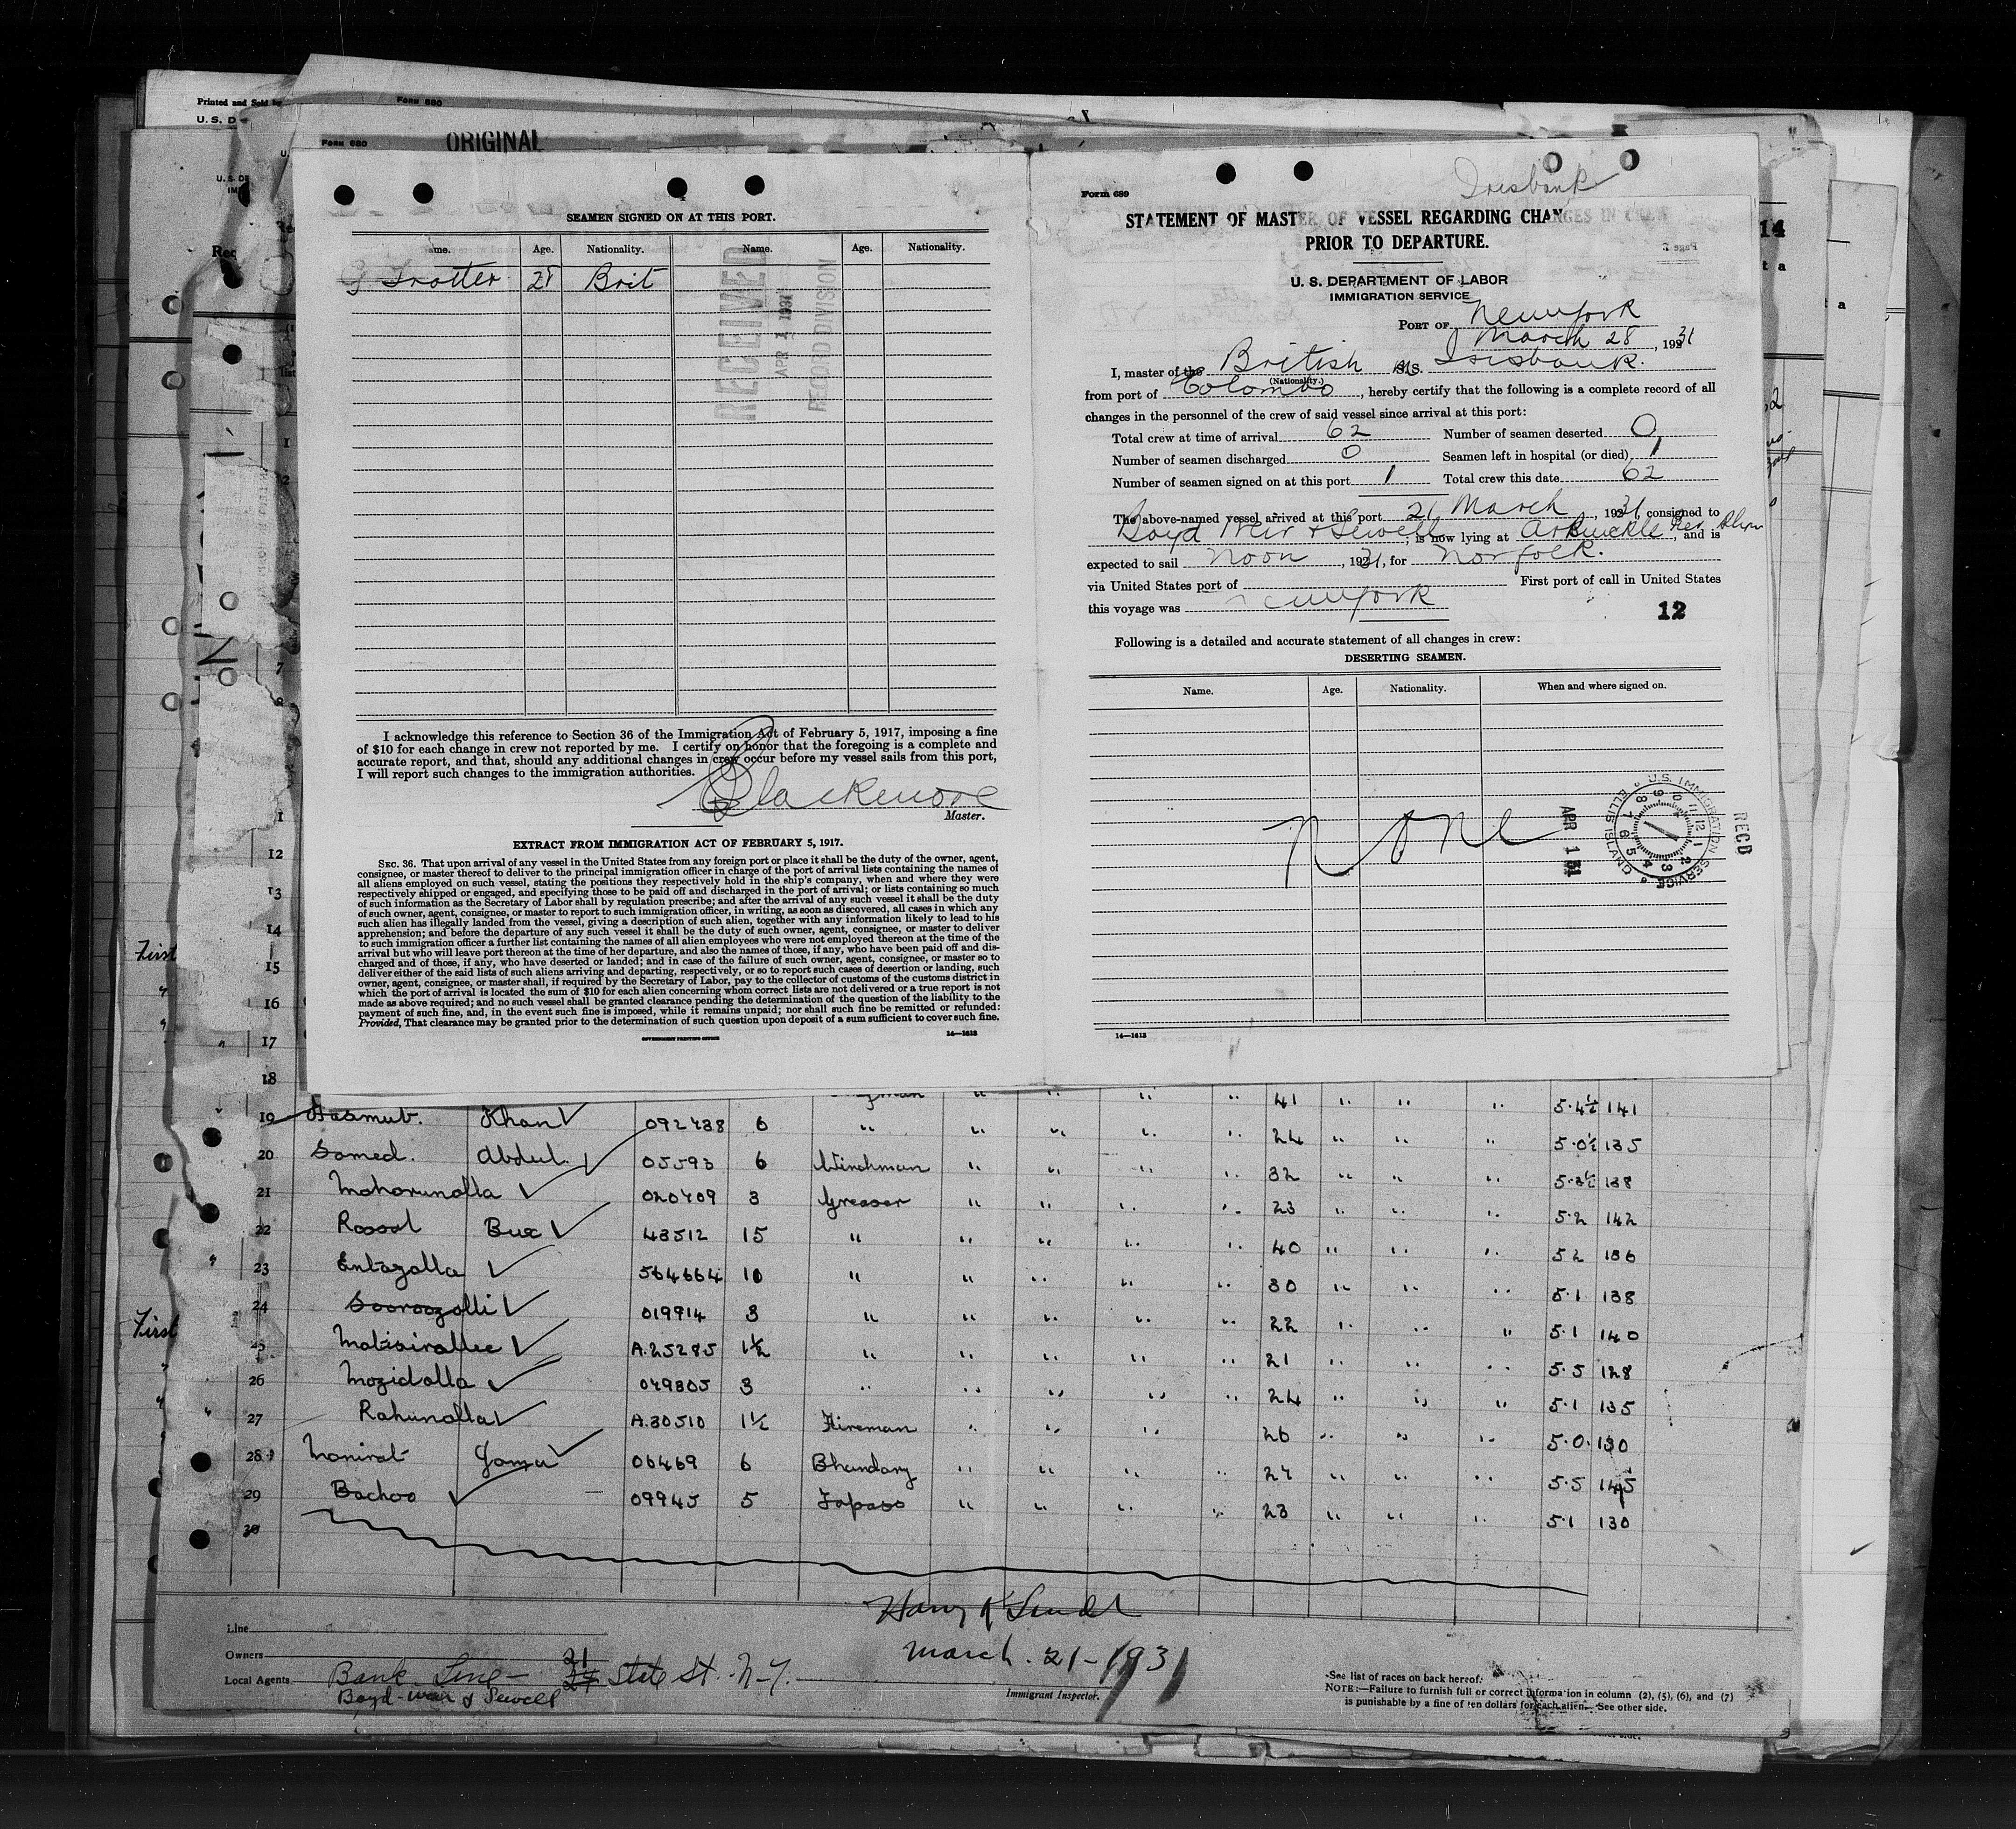 Printed and Sold by
Form 680
U. S. D
Form 680
ORIGINAL
SEAMEN SIGNED ON AT THIS PORT.
ame. Age. Nationality. Name. Age. Nationality.
G Trotter 28 Brit
RECEIVED
APR 1 1931
RECORD DIVISION
I acknowledge this reference to Section 36 of the Immigration Act of February 5, 1917, imposing a fine
of $10 for each change in crew not reported by me. I certify on honor that the foregoing is a complete and
accurate report, and that, should any additional changes in crew occur before my vessel sails from this port,
I will report such changes to the immigration authorities.
Blackmore
Master.
EXTRACT FROM IMMIGRATION ACT OF FEBRUARY 5, 1917.
SEC. 36. That upon arrival of any vessel in the United States from any foreign port or place it shall be the duty of the owner, agent,
consignee, or master thereof to deliver to the principal immigration officer in charge of the port of arrival lists containing the names of
all aliens employed on such vessel, stating the positions they respectively hold in the ship's company, when and where they were
respectively shipped or engaged, and specifying those to be paid off and discharged in the port of arrival; or lists containing so much
of such information as the Secretary of Labor shall by regulation prescribe; and after the arrival of any such vessel it shall be the duty
of such owner, agent, consignee, or master to report to such immigration officer, in writing, as soon as discovered, all cases in which any
such alien has illegally landed from the vessel, giving a description of such alien, together with any information likely to lead to his
apprehension; and before the departure of any such vessel it shall be the duty of such owner, agent, consignee, or master to deliver
to such immigration officer a further list containing the names of all alien employees who were not employed thereon at the time of the
arrival but who will leave port thereon at the time of her departure, and also the names of those, if any, who have been paid off and dis-
charged and of those, if any, who have deserted or landed; and in case of the failure of such owner, agent, consignee, or master so to
deliver either of the said lists of such aliens arriving and departing, respectively, or so to report such cases of desertion or landing, such
owner, agent, consignee, or master shall, if required by the Secretary of Labor, pay to the collector of customs of the customs district in
which the port of arrival is located the sum of $10 for each alien concerning whom correct lists are not delivered or a true report is not
made as above required; and no such vessel shall be granted clearance pending the determination of the question of the liability to the
payment of such fine, and, in the event such fine is imposed, while it remains unpaid; nor shall such fine be remitted or refunded:
Provided, That clearance may be granted prior to the determination of such question upon deposit of a sum sufficient to cover such fine.
GOVERNMENT PRINTING OFFICE 14—1613
Irisbank
Form 689
STATEMENT OF MASTER OF VESSEL REGARDING CHANGES IN CREW
PRIOR TO DEPARTURE.
U. S. DEPARTMENT OF LABOR
IMMIGRATION SERVICE
PORT OF New York
March 28, 1931
I, master of the British M.S. Irisbank.
(Nationality.)
from port of Colombo, hereby certify that the following is a complete record of all
changes in the personnel of the crew of said vessel since arrival at this port:
Total crew at time of arrival 62 Number of seamen deserted 0
Number of seamen discharged 0 Seamen left in hospital (or died) 1
Number of seamen signed on at this port 1 Total crew this date 62
The above-named vessel arrived at this port 21 March, 1931, consigned to
Boyd Weir & Sewell, is now lying at Arbuckle, and is
expected to sail Noon, 1931, for Norfolk.
via United States port of First port of call in United States
this voyage was New York
12
Following is a detailed and accurate statement of all changes in crew:
DESERTING SEAMEN.
Name. Age. Nationality. When and where signed on.
None
U.S. IMMIGRATION SERVICE ELLIS ISLAND
APR 1 31
REC'D
14—1613
41 " " " 5·4½ 141
19 Khan 092738 6 " " " " " 24 " " " 5·0½ 135
20 Samed. Abdul. 05593 6 Winchman " " " " 32 " " " 5·3½ 138
21 020709 3 Greaser " " " " 23 " " " 5·2 142
22 Rossol Bux 43512 15 " " " " " 40 " " " 5 2 136
23 Entazolla 564664 10 " " " " " 30 " " " 5·1 138
24 019914 3 " " " " " 22 " " " 5·1 140
25 A.25285 1½ " " " " " 21 " " " 5·5 128
26 Mozidolla 049805 3 " " " " " 24 " " " 5·1 135
27 A.30510 1½ Fireman " " " 26 " " " 5·0 130
28 06469 6 Bhandary " " " " 27 " " " 5·5 145
29 Bachoo 09945 5 Topass " " " " 23 " " " 5·1 130
30
First
First
Line
Owners
Local Agents Bank Line - 21 State St. N-Y.
Boyd-Weir & Sewell
March. 21-1931
Immigrant Inspector.
See list of races on back hereof.
NOTE:—Failure to furnish full or correct information in column (2), (5), (6), and (7)
is punishable by a fine of ten dollars for each alien. See other side.